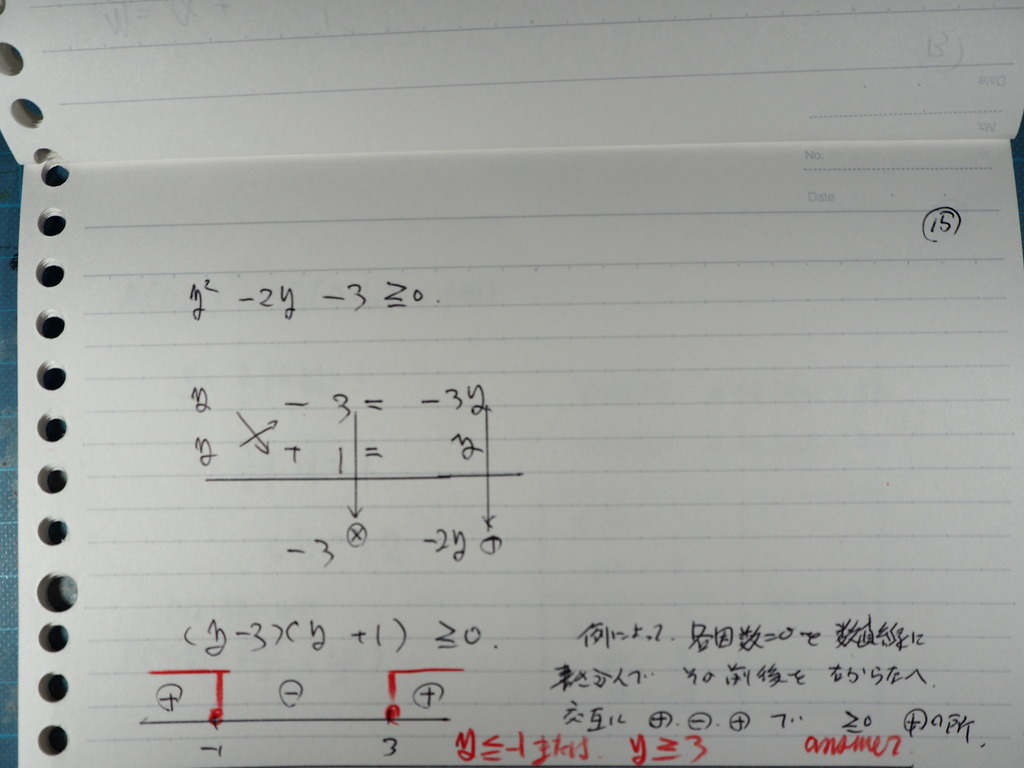 No.
Date
⑮
y² -2y -3 ≧0.
y - 3 = -3y
y + 1 = y
-3 ⊗ -2y ⊕
(y-3)(y+1) ≧0.
例によって. 各因数=0を数直線に
その前後を右から左へ.
交互に ⊕.⊖.⊕ で ≧0 ⊕の所.
⊕ ⊖ ⊕
-1 3
y≦-1 または. y≧3 answer.